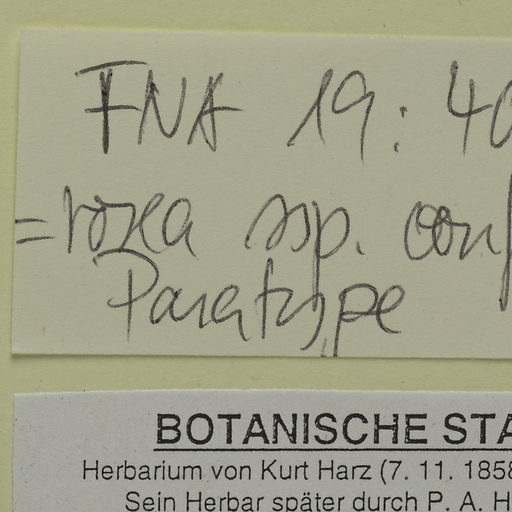 FNA 19: 40
= rosea ssp. conf
Paratype
BOTANISCHE STA
Herbarium von Kurt Harz (7. 11. 1858
Sein Herbar später durch P. A. H